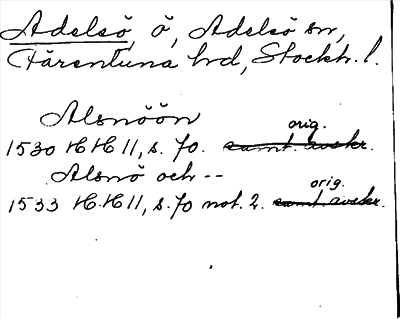 Adelsö, ö, Adelsö sn,
Färentuna hd, Stockh. l.
Alsnöön
1530 HH 11, s. 70. samt. avskr. orig.
Alsnö och --
1533 H.H 11, s. 70 not. 2. samt. avskr. orig.